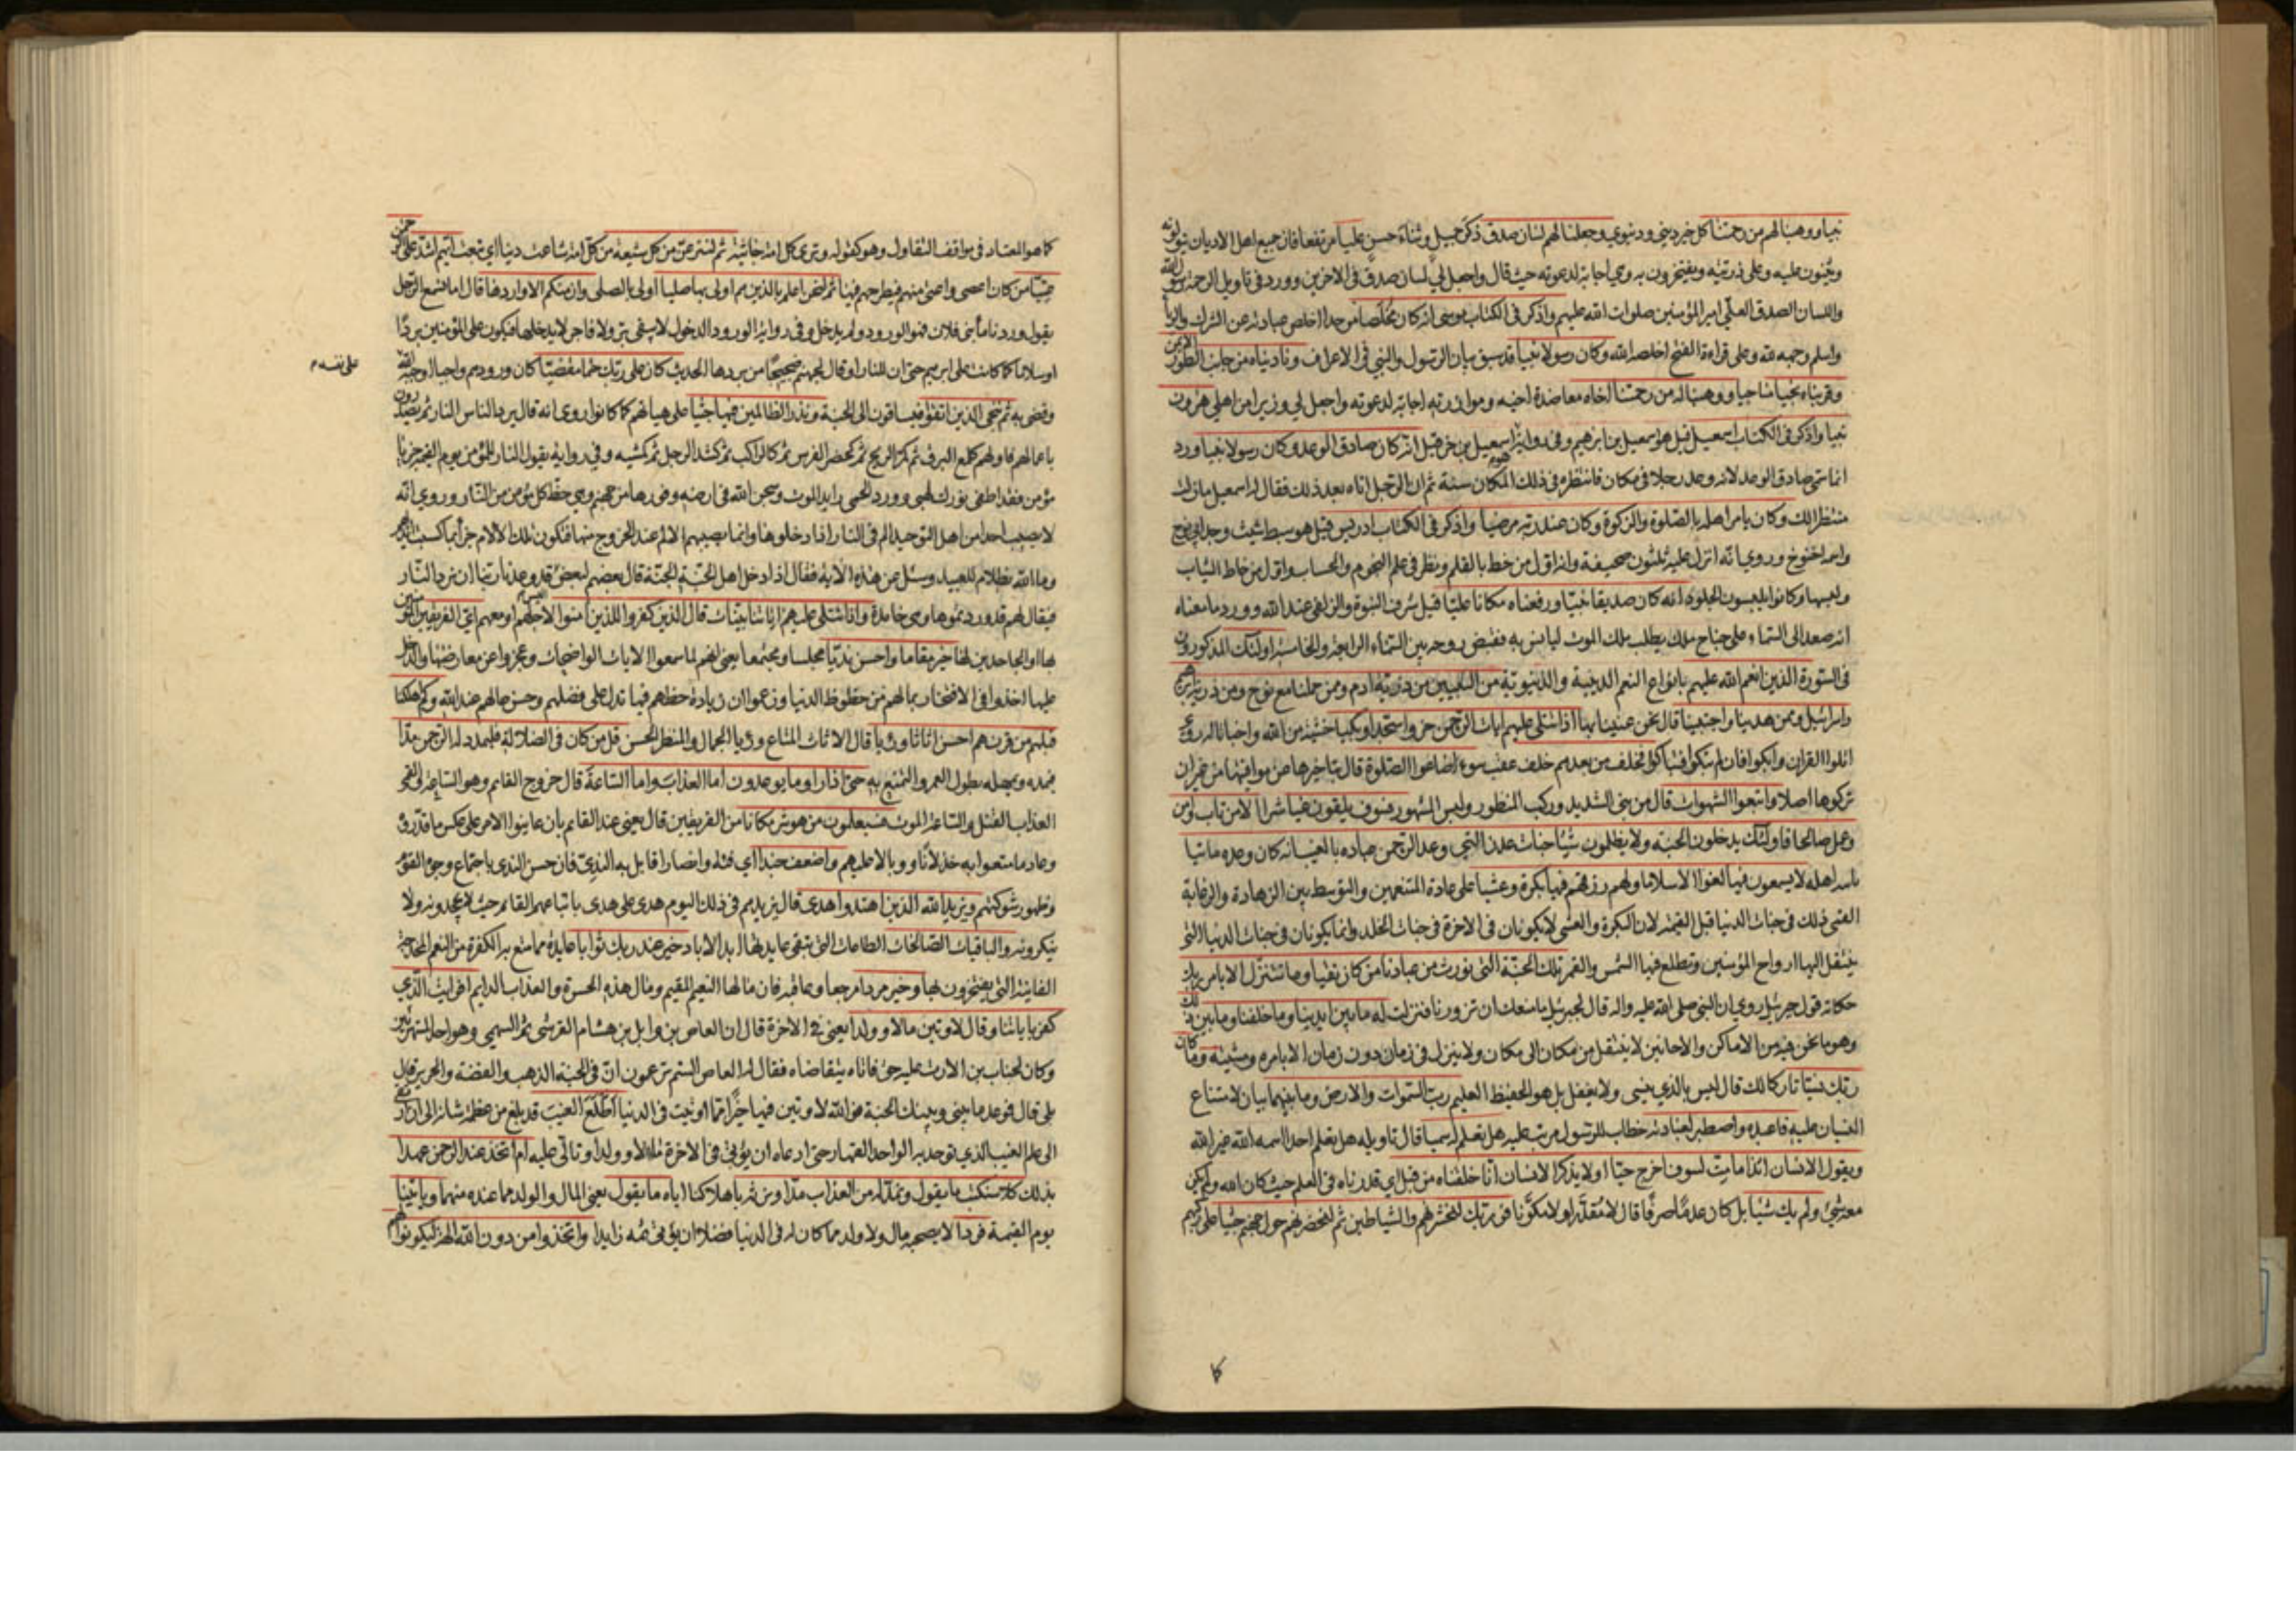 نبيا ووهبنا لهم من رحمتنا كل خير ديني ودنيوي وجعلنا لهم لسان صدق ذكر جميل وثناء حسن عليا مرتفعا فان جميع اهل الاديان يتولونه
ويثنون عليه وعلى ذريته ويفتخرون به وهي اجابة لدعوته حيث قال واجعل لي لسان صدق في الاخرين وورد في تاويل الرحمة رسول الله
واللسان الصدق العلي امير المؤمنين صلوات الله عليهم واذكر في الكتاب موسى انه كان مخلصا موحدا اخلص عبادته عن الشرك والريا
واسلم وجهه لله وعلى قراءة الفتح اخلصه الله وكان رسولا نبيا قد سبق بيان الرسول والنبي في الاعراف وناديناه من جانب الطور الايمن
وقربناه نجيا مناجيا ووهبنا له من رحمتنا اخاه معاضدة اخيه وموازرته اجابة لدعوته واجعل لي وزيرا من اهلي هرون
نبيا واذكر في الكتاب اسمعيل قيل هو اسمعيل بن ابرهيم وفي رواية اسمعيل بن حزقيل انه كان صادق الوعد وكان رسولا نبيا ورد
انما سمي صادق الوعد لانه وعد رجلا في مكان فانتظره في ذلك المكان سنة ثم ان الرجل اتاه بعد ذلك فقال له اسمعيل ما زلت
منتظرا لك وكان يامر اهله بالصلوة والزكوة وكان عند ربه مرضيا واذكر في الكتاب ادريس قيل هو سبط شيث وجد ابي نوح
واسمه اخنوخ وروي انه انزل عليه ثلثون صحيفة وانه اول من خط بالقلم ونظر في علم النجوم والحساب واول من خاط الثياب
ولبسها وكانوا يلبسون الجلود انه كان صديقا نبيا ورفعناه مكانا عليا قيل شرف النبوة والزلفى عند الله وورد ما معناه
انه صعد الى السماء على جناح ملك يطلب ملك الموت ليانس به فقبض روحه بين السماء الرابعة والخامسة اولئك المذكورون
في السورة الذين انعم الله عليهم بانواع النعم الدينية والدنيوية من النبيين من ذرية ادم وممن حملنا مع نوح ومن ذرية ابرهيم
واسرائيل وممن هدينا واجتبينا قال نحن عنينا بها اذا تتلى عليهم ايات الرحمن خروا سجدا وبكيا خشية من الله واخباتا له روي
اتلوا القران وابكوا فان لم تبكوا فتباكوا فخلف من بعدهم خلف عقب سوء اضاعوا الصلوة قال بتاخيرها عن مواقيتها من غير ان
تركوها اصلا واتبعوا الشهوات قال من بنى الشديد وركب المنظور ولبس المشهور فسوف يلقون غيا شرا الا من تاب وامن
وعمل صالحا فاولئك يدخلون الجنة ولا يظلمون شيئا جنات عدن التي وعد الرحمن عباده بالغيب انه كان وعده ماتيا
ياتيه اهله لا يسمعون فيها لغوا الا سلاما ولهم رزقهم فيها بكرة وعشيا على عادة المتنعمين والتوسط بين الزهادة والرغابة
القمي ذلك في جنات الدنيا قبل القيمة لان البكرة والعشي لا يكونان في الاخرة في جنات الخلد وانما يكونان في جنات الدنيا التي
ينتقل اليها ارواح المؤمنين وتطلع فيها الشمس والقمر تلك الجنة التي نورث من عبادنا من كان تقيا وما نتنزل الا بامر ربك
حكاية قول جبرئيل روي ان النبي صلى الله عليه واله قال لجبرئيل ما منعك ان تزورنا فنزلت له ما بين ايدينا وما خلفنا وما بين ذلك
وهو ما نحن فيه من الاماكن والاحايين لا ينتقل من مكان الى مكان ولا ينزل في زمان دون زمان الا بامره ومشيته وما كان
ربك نسيا تاركا لك قال ليس بالذي ينسى ولا يغفل بل هو الحفيظ العليم رب السموات والارض وما بينهما بيان لامتناع
النسيان عليه فاعبده واصطبر لعبادته خطاب للرسول مرتب عليه هل تعلم له سميا قال تاويله هل تعلم احدا اسمه الله غير الله
ويقول الانسان ائذا ما مت لسوف اخرج حيا اولا يذكر الانسان انا خلقناه من قبل اي قدرناه في العلم حيث كان الله ولم يكن
معه شيء ولم يك شيئا بل كان عدما صرفا قال لا مقدرا ولا مكونا فوربك لنحشرنهم والشياطين ثم لنحضرنهم حول جهنم جثيا على ركبهم
كا
كما هو المعتاد في مواقف التقاول وهو كقوله وترى كل امة جاثية ثم لننزعن من كل شيعة من كل امة شاعت دينا اي تبعت ايهم اشد على الرحمن
عتيا من كان اعصى واعتى منهم فيطرحهم فيها ثم لنحن اعلم بالذين هم اولى بها صليا اولى بالصلي وان منكم الا واردها قال اما تسمع الرجل
يقول وردنا ماء بني فلان فهو الورود ولم يدخل وفي رواية الورود الدخول لا يبقى بر ولا فاجر الا يدخلها فيكون على المؤمنين بردا
وسلاما كما كانت على ابرهيم حتى ان للنار او قال لجهنم ضجيجا من بردها الحديث كان على ربك حتما مقضيا كان ورودهم واجبا اوجبه الله
على نفسه
وقضى به ثم ننجي الذين اتقوا فيساقون الى الجنة ونذر الظالمين فيها جثيا على هياتهم كما كانوا روي انه قال يرد الناس النار ثم يصدرون
باعمالهم فاولهم كلمع البرق ثم كمر الريح ثم كحضر الفرس ثم كالراكب ثم كشد الرجل ثم كمشيه وفي رواية يقول النار للمؤمن يوم القيمة جز يا
مؤمن فقد اطفى نورك لهبي وورد الحمى رايد الموت وسجن الله في ارضه وفورها من جهنم وهي حظ كل مؤمن من النار وروي انه
لا يصيب احدا من اهل التوحيد الم في النار اذا دخلوها وانما يصيبهم الالام عند الخروج منها فتكون تلك الالام جزاء بما كسبت ايديهم
وما الله بظلام للعبيد وسئل عن هذه الاية فقال اذا دخل اهل الجنة الجنة قال بعضهم لبعض قد وعدنا ربنا ان نرد النار
فيقال لهم قد وردتموها وهي خامدة واذا تتلى عليهم اياتنا بينات قال الذين كفروا للذين امنوا لاجلهم او معهم اي الفريقين المؤمنين
بها او الجاحدين لها خير مقاما واحسن نديا مجلسا ومجتمعا يعني انهم لما سمعوا الايات الواضحات وعجزوا عن معارضتها والدخل
عليها اخذوا في الافتخار بما لهم من حظوظ الدنيا وزعموا ان زيادة حظهم فيها تدل على فضلهم وحسن حالهم عند الله وكم اهلكنا
قبلهم من قرن هم احسن اثاثا ورءيا قال الاثاث المتاع ورئيا الجمال والمنظر الحسن قل من كان في الضلالة فليمدد له الرحمن مدا
فيمده ويمهله بطول العمر والتمتع به حتى اذا راوا ما يوعدون اما العذاب واما الساعة قال خروج القايم وهو الساعة القمي
العذاب القتل والساعة الموت فسيعلمون من هو شر مكانا من الفريقين قال يعني عند القايم بان عاينوا الامر على عكس ما قدروه
وعاد ما متعوا به خذلانا ووبالا عليهم واضعف جندا اي فئة وانصارا قابل به النديّ فان حسن الندي باجتماع وجوه القوم
وظهور شوكتهم ويزيد الله الذين اهتدوا هدى قال يزيدهم في ذلك اليوم هدى على هدى باتباعهم القائم حيث لا يجحدونه ولا
ينكرونه والباقيات الصالحات الطاعات التي تبقى عايدتها ابد الاباد خير عند ربك ثوابا عايدة مما متع به الكفرة من النعم المخدجة
الفانية التي يفتخرون بها وخير مردا مرجعا وعاقبة فان مالها النعيم المقيم ومال هذه الحسرة والعذاب الدايم افرايت الذي
كفر باياتنا وقال لاوتين مالا وولدا يعني في الاخرة قال ان العاص بن وايل بن هشام القرشي ثم السهمي وهو احد المستهزئين
وكان لخباب بن الارت عليه حق فاتاه يتقاضاه فقال له العاص الستم تزعمون ان في الجنة الذهب والفضة والحرير قال
بلى قال فموعد ما بيني وبينك الجنة فوالله لاوتين فيها خيرا مما اوتيت في الدنيا اطلع الغيب قد بلغ من عظمة شانه الى ان ارتقى
الى علم الغيب الذي توحد به الواحد القهار حتى ادعاه ان يؤتى في الاخرة مالا وولدا وتالى عليه ام اتخذ عند الرحمن عهدا
بذلك كلا سنكتب ما يقول ونمد له من العذاب مدا ونرثه باهلاكنا اياه ما يقول يعني المال والولد مما عنده منهما وياتينا
يوم القيمة فردا لا يصحبه مال ولا ولد مما كان له في الدنيا فضلا ان يؤتى ثمه زايدا واتخذوا من دون الله الهة ليكونوا لهم